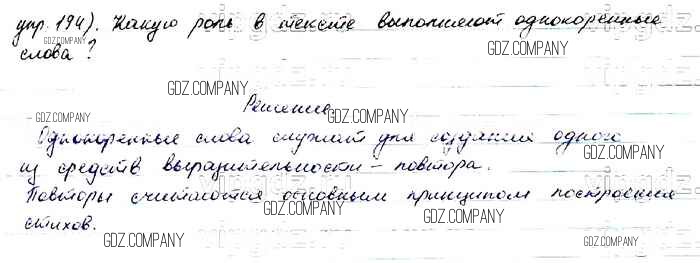 упр. 194). Какую роль в тексте выполняют однокоренные
слова?
GDZ.COMPANY
GDZ.COMPANY
GDZ.COMPANY
Решение
GDZ.COMPANY
GDZ.COMPANY
Однокоренные слова служат для создания одного
GDZ.COMPANY
GDZ.COMPANY
из средств выразительности – повтора.
Повторы считаются основным принципом построения
GDZ.COMPANY
стихов.
GDZ.COMPANY
GDZ.COMPANY